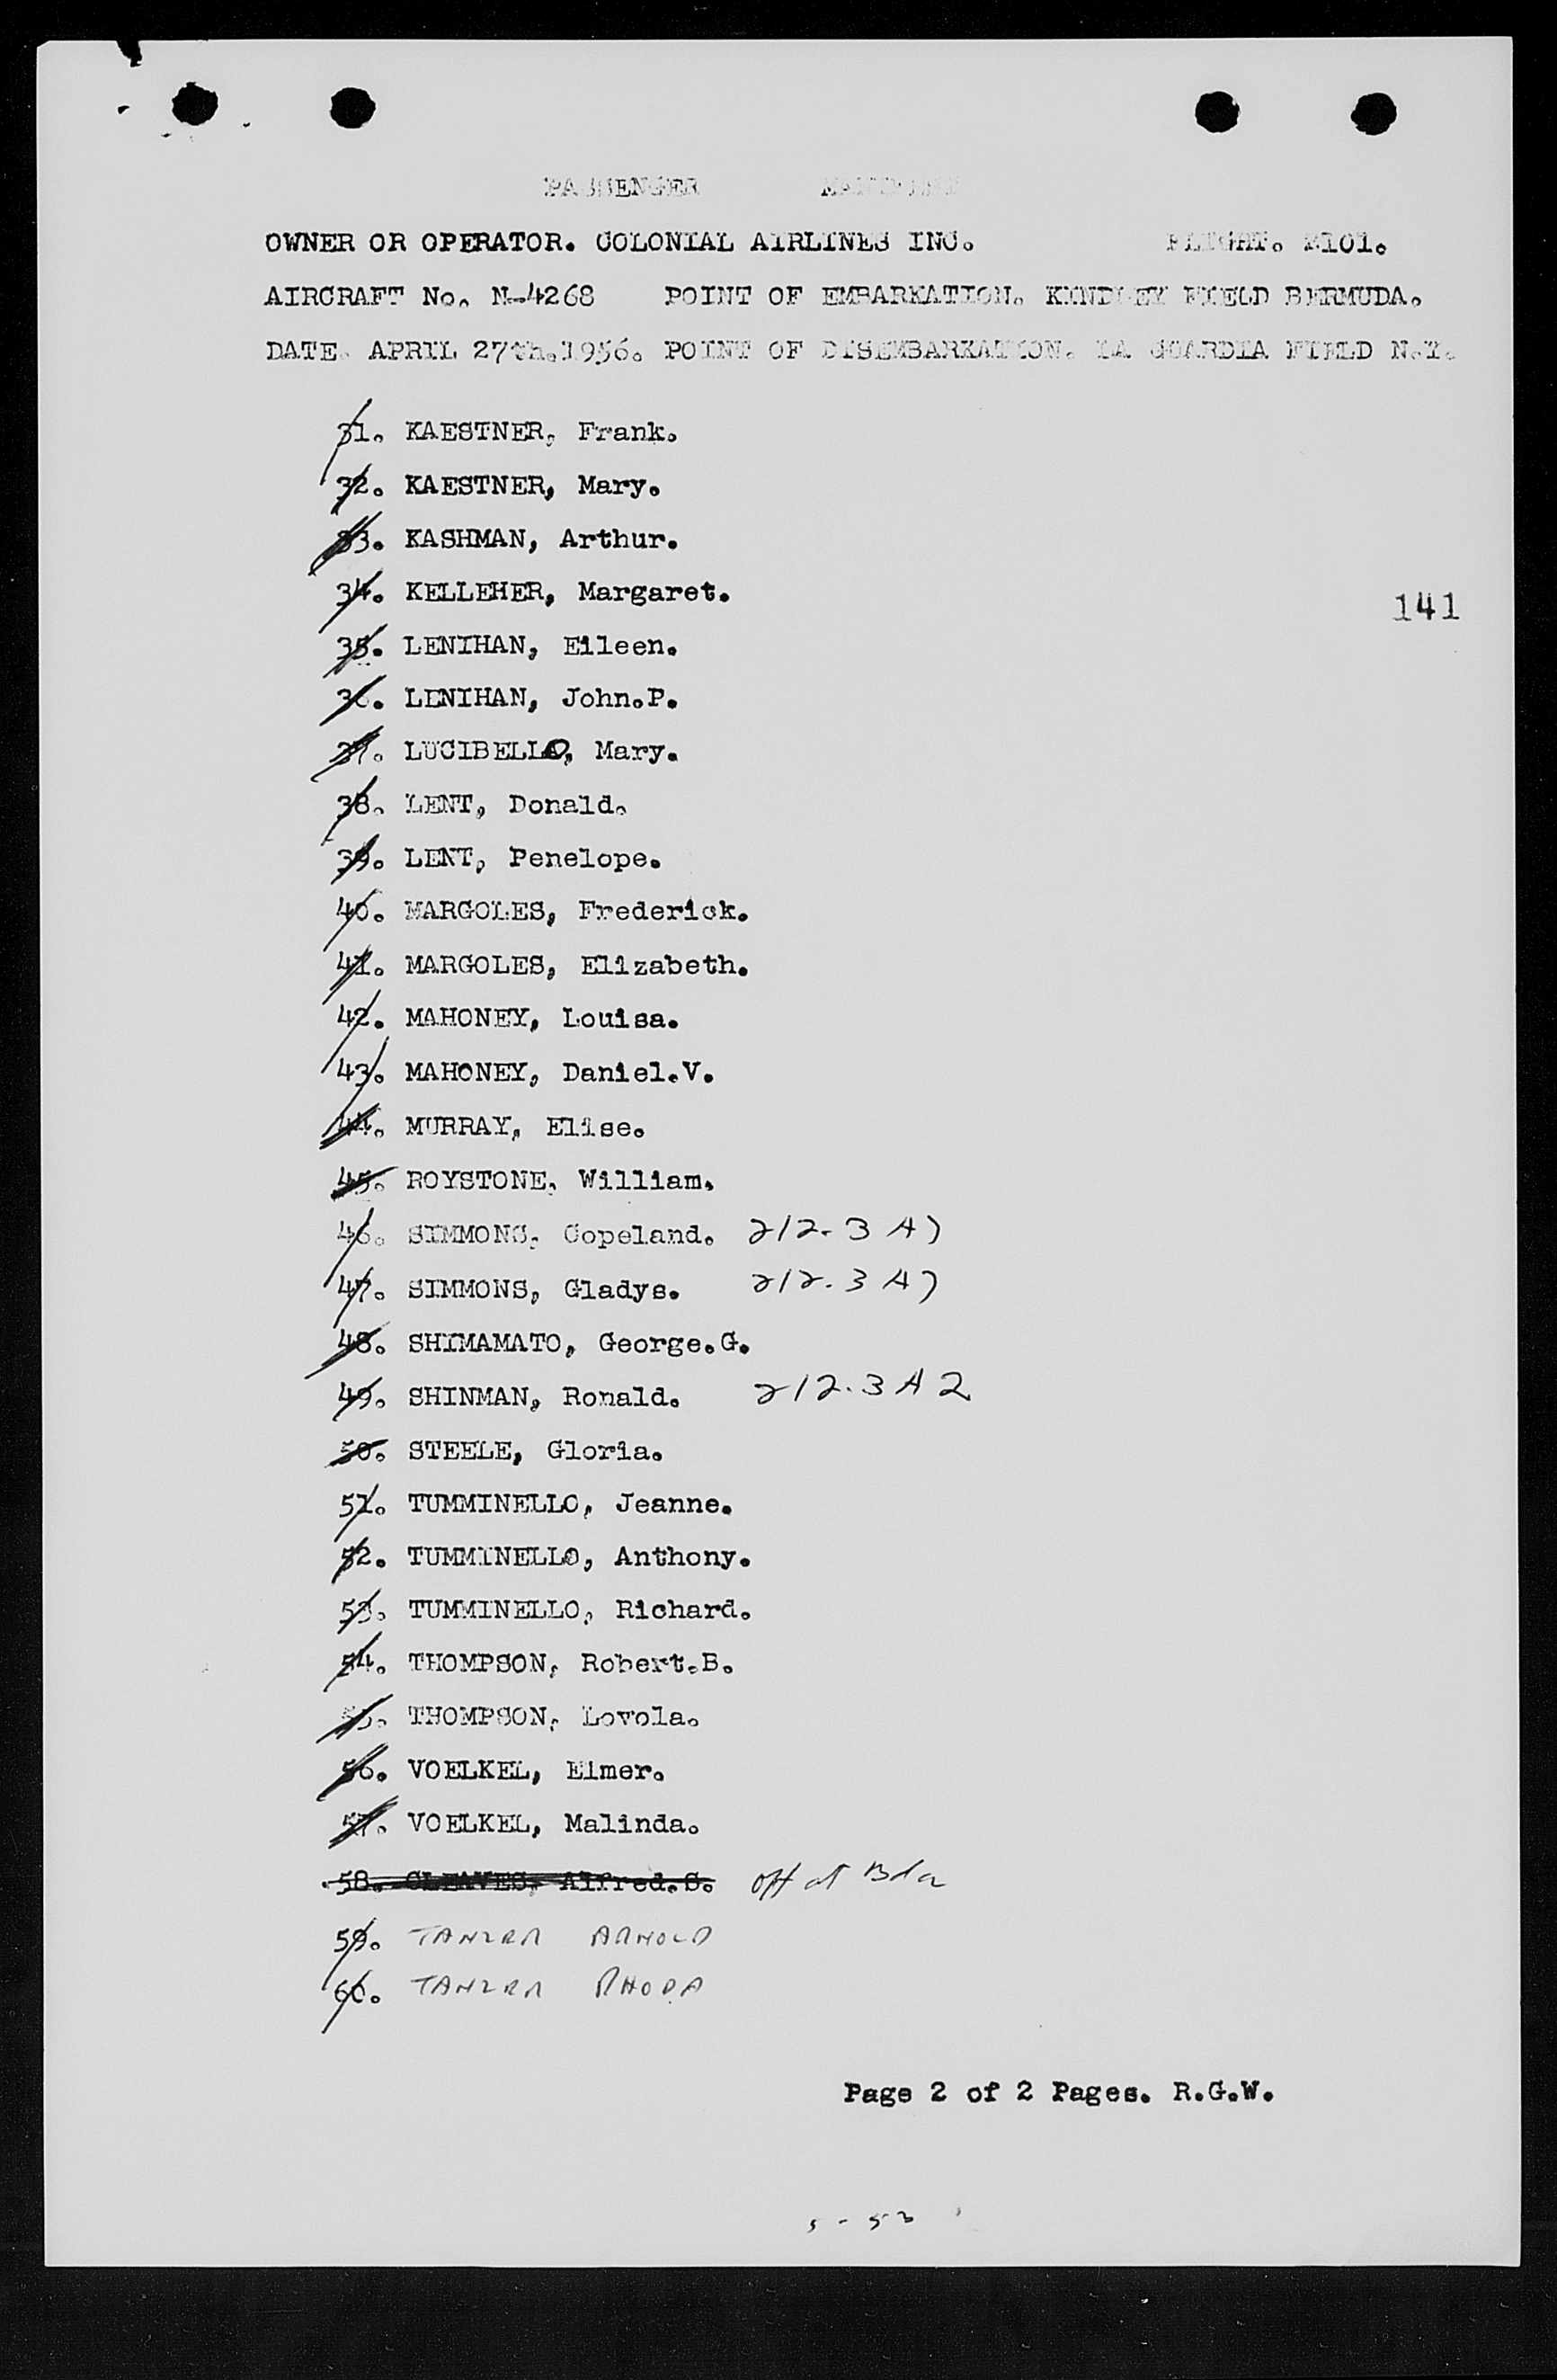 PASSENGER MANIFEST
OWNER OR OPERATOR. COLONIAL AIRLINES INC. FLIGHT. M101.
AIRCRAFT No. N-4268 POINT OF EMBARKATION. KINDLEY FIELD BERMUDA.
DATE. APRIL 27th.1956. POINT OF DISEMBARKATION. LA GUARDIA FIELD N.Y.
31. KAESTNER, Frank.
32. KAESTNER, Mary.
33. KASHMAN, Arthur.
34. KELLEHER, Margaret.
141
35. LENIHAN, Eileen.
36. LENIHAN, John.P.
37. LUCIBELLO, Mary.
38. LENT, Donald.
39. LENT, Penelope.
40. MARGOLES, Frederick.
41. MARGOLES, Elizabeth.
42. MAHONEY, Louisa.
43. MAHONEY, Daniel.V.
44. MURRAY, Elise.
45. ROYSTONE, William.
46. SIMMONS, Copeland. 212.3 A)
47. SIMMONS, Gladys. 212.3 A)
48. SHIMAMATO, George.G.
49. SHINMAN, Ronald. 212.3 A 2
50. STEELE, Gloria.
51. TUMMINELLO, Jeanne.
52. TUMMINELLO, Anthony.
53. TUMMINELLO, Richard.
54. THOMPSON, Robert.B.
55. THOMPSON, Lovola.
56. VOELKEL, Elmer.
57. VOELKEL, Malinda.
58. CLEAVES, Alfred.S. off at Bda
59. TANZER ARNOLD
60. TANZER RHODA
Page 2 of 2 Pages. R.G.W.